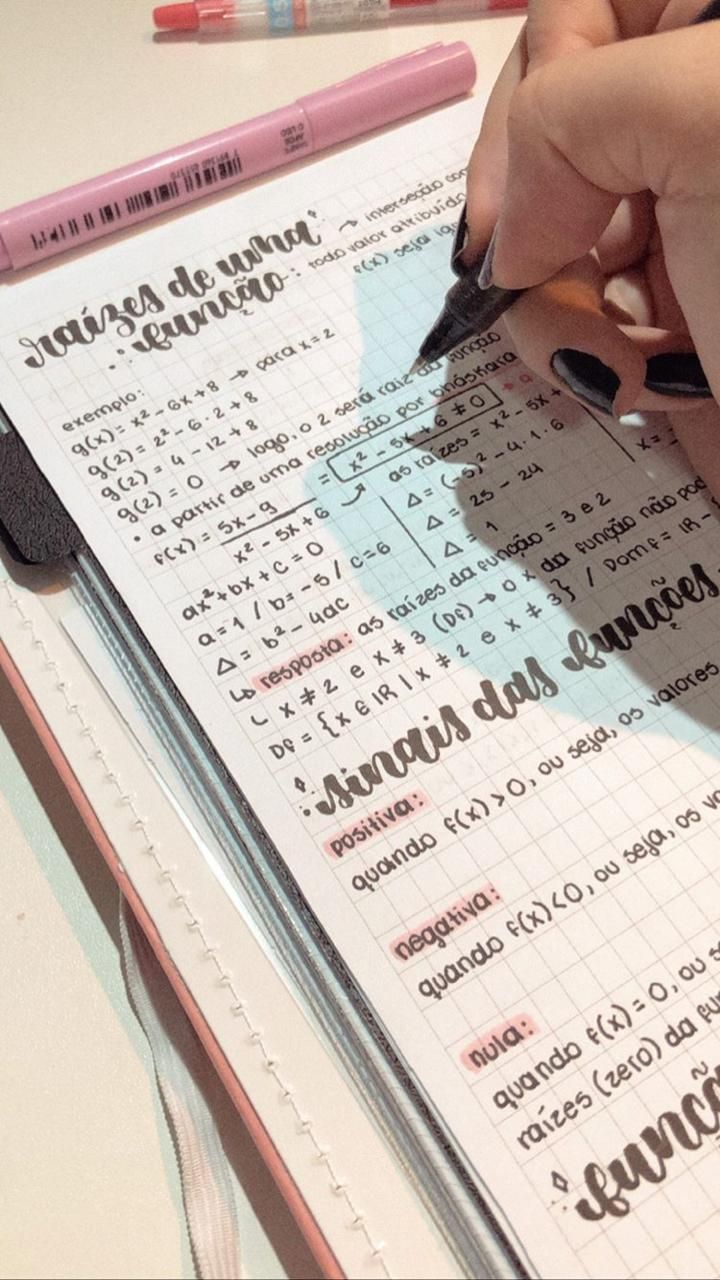 raízes de uma função
→ interseção
: todo valor atribuído
f(x) seja
exemplo:
g(x) = x² - 6x + 8 → para x = 2
g(2) = 2² - 6 · 2 + 8
g(2) = 4 - 12 + 8
g(2) = 0 → logo, o 2 será raiz da função
• a partir de uma resolução por bháskara
f(x) = 5x - 9
x² - 5x + 6
= x² - 5x + 6 ≠ 0
ax² + bx + c = 0
a = 1 / b = -5 / c = 6
Δ = b² - 4ac
as raízes = x² - 5x +
Δ = (-5)² - 4 · 1 · 6
Δ = 25 - 24
Δ = 1
x =
↳ resposta: as raízes da função = 3 e 2
↳ x ≠ 2 e x ≠ 3 (Df) → o x da função não
Df = {x ∈ IR | x ≠ 2 e x ≠ 3} / Dom f = IR -
sinais das funções
positiva:
quando f(x) > 0, ou seja, os valores
negativa:
quando f(x) < 0, ou seja, os
nula:
quando f(x) = 0, ou
raízes (zero) da